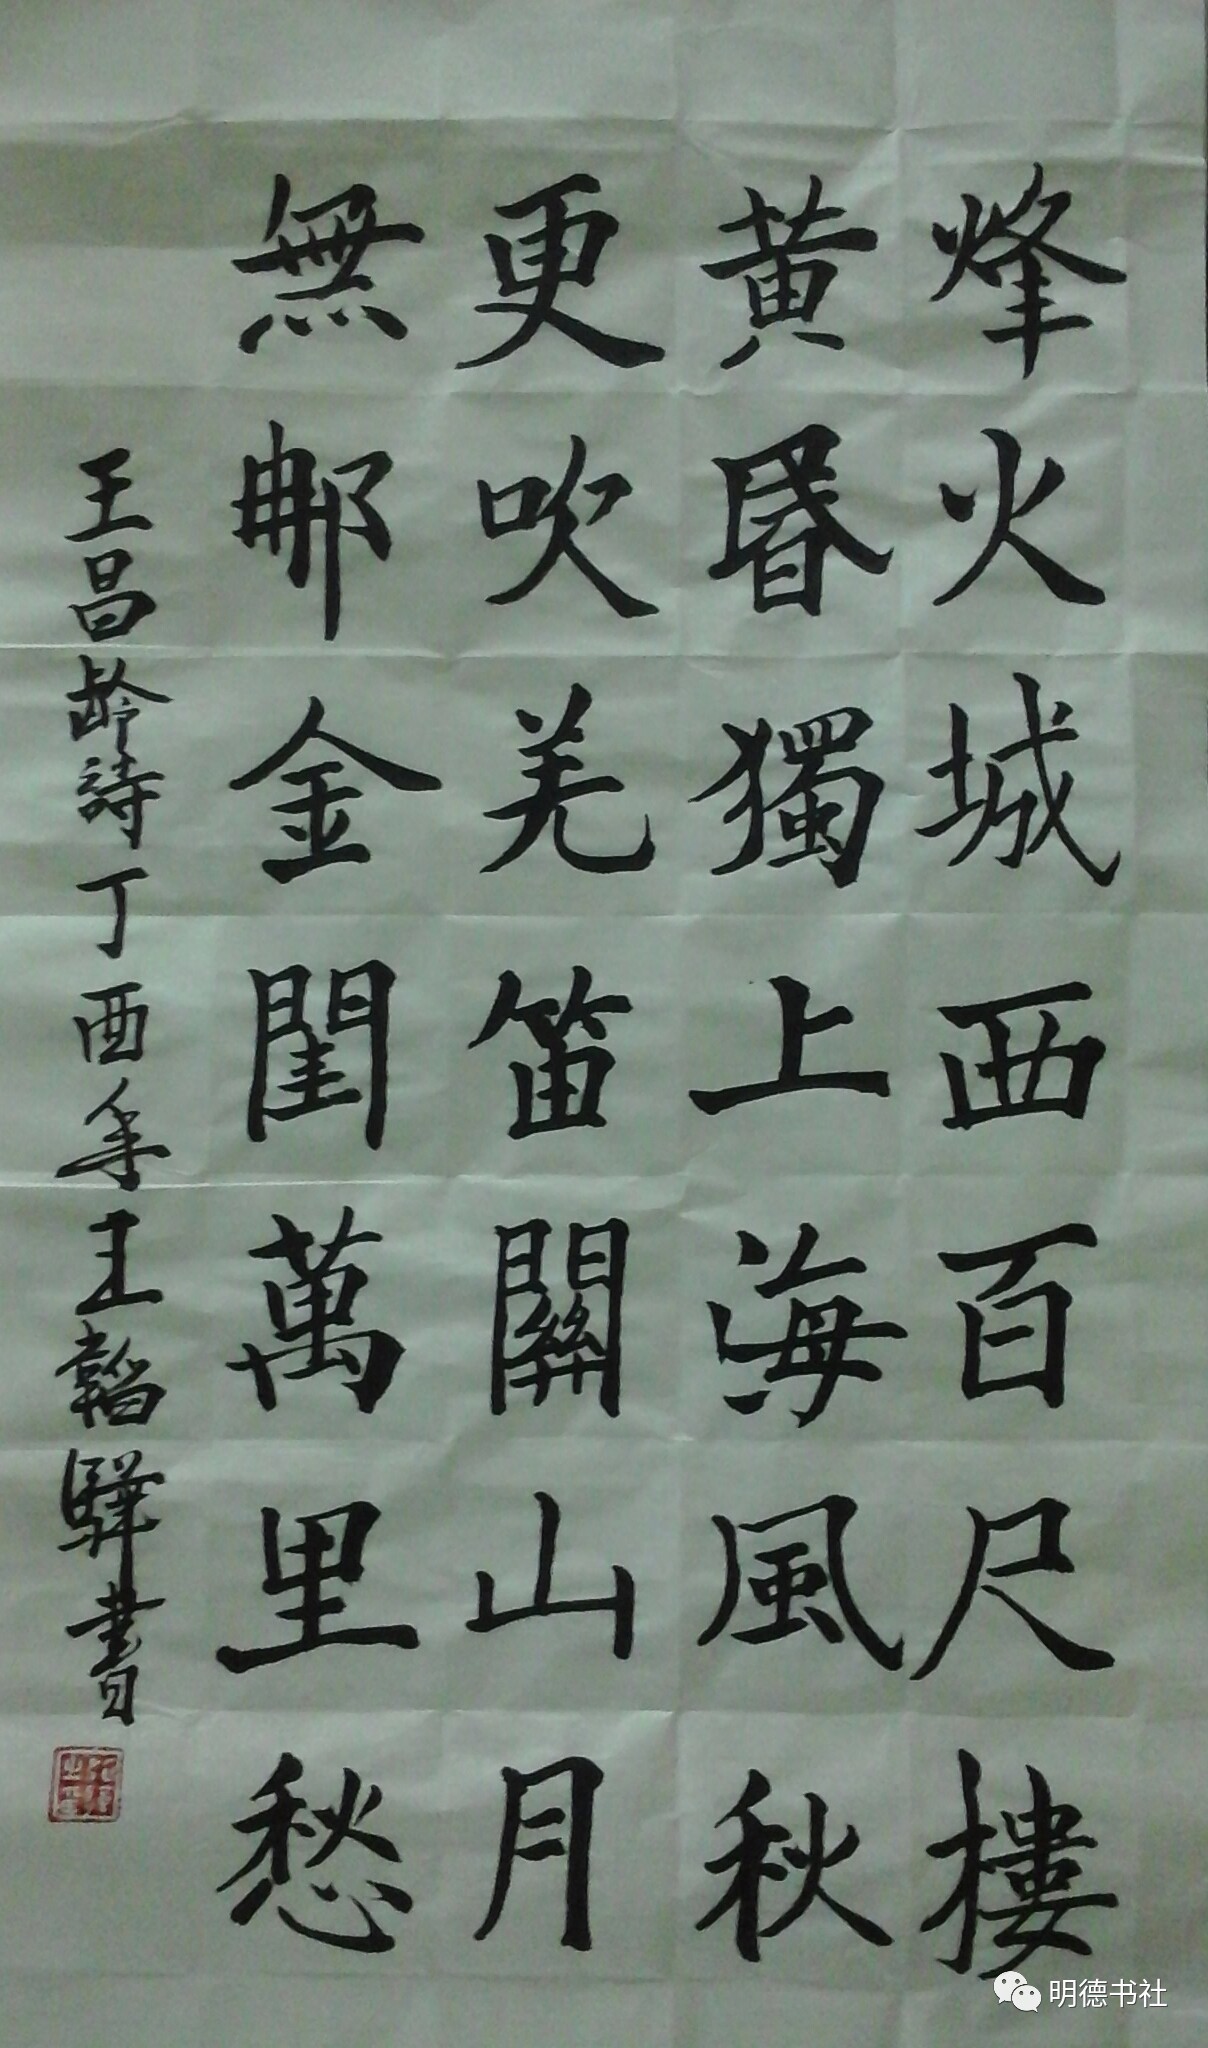 烽火城西百尺樓
黃昬獨上海風秋
更吹羌笛關山月
無那金閨萬里愁
王昌齡詩丁酉年王韜驊書
明德书社